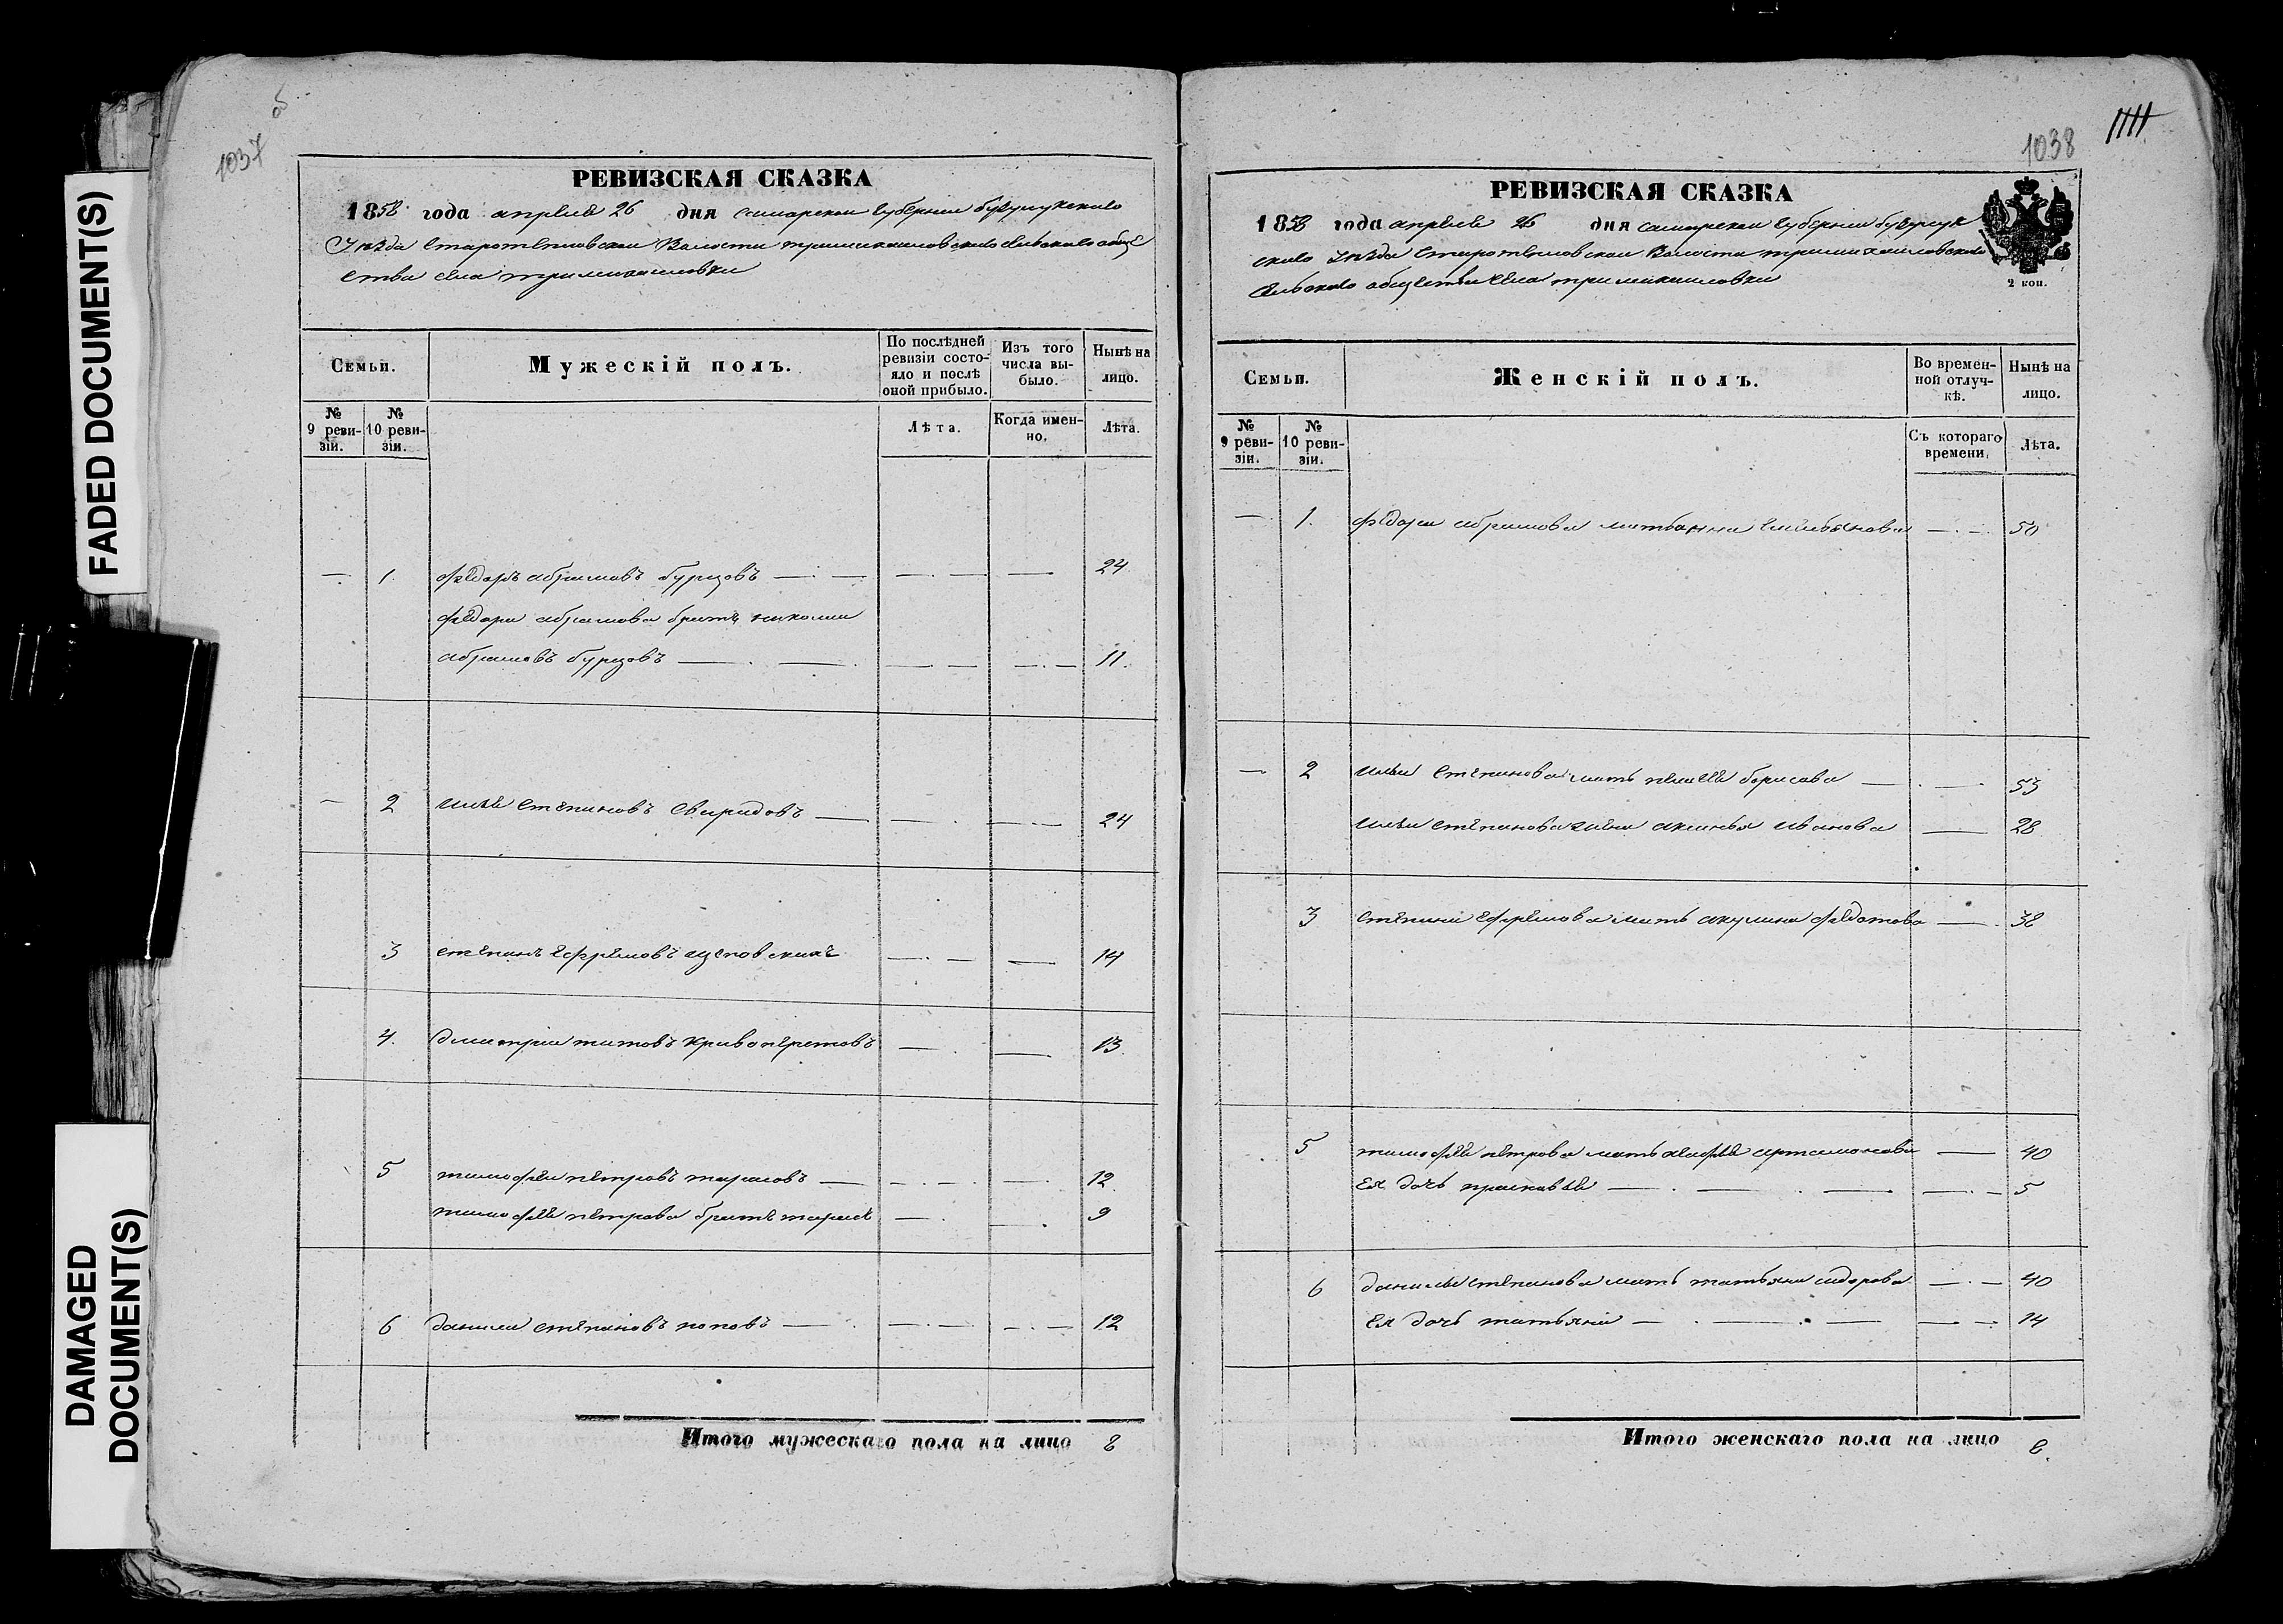 FADED DOCUMENT(S)
DAMAGED
DOCUMENT(S)
1037
об
РЕВИЗСКАЯ СКАЗКА
1858 года апреля 26 дня самарской губернии бузулукского
Уезда Старотепловской Волости тримихайловского сельского обще
ства села тримихайловки
Семьи.
Мужескій полъ.
По послѣдней
ревизіи состо-
яло и послѣ
оной прибыло.
Изъ того
числа вы-
было.
Нынѣ на
лицо.
№
9 реви-
зіи.
№
10 реви-
зіи.
Лѣта.
Когда имен-
но.
Лѣта.
— 1. федоръ абрамовъ бурцовъ — — — 24
федора абрамова братъ николаи
абрамовъ бурцовъ — — — 11.
— 2 илья степановъ Свиридовъ — — — 24
3 степанъ ефремовъ — — 14
4. дмитрии титовъ кривопиретовъ — — 13
5 тимофеи петровъ тарасовъ — — — 12
тимофея петрова братъ тарасъ — — 9
6 данила степановъ поповъ — — — 12
Итого мужескаго пола на лицо 8
1038
РЕВИЗСКАЯ СКАЗКА
1858 года апреля 26 дня самарской губернии бузулук
ского Уезда Старотепловской Волости тримихайловского
сельского общества села тримихайловки
2 коп.
Семьи.
Женскій полъ.
Во времен-
ной отлуч-
кѣ.
Нынѣ на
лицо.
№
9 реви-
зіи.
№
10 реви-
зіи.
Съ котораго
времени.
Лѣта.
— 1. федора абрамова мать анна емельянова — 50
— 2 ильи степанова мать пелагея борисова — — 53
ильи степанова жена аксинья иванова — 28
3 степана ефремова мать акулина федотова — 38
5 тимофея петрова мать агафья артамонова — 40
ея дочь прасковья — — — 5
6 данилы степанова мать татьяна сидорова — 40
ея дочь татьяна — — — 14
Итого женскаго пола на лицо 8.